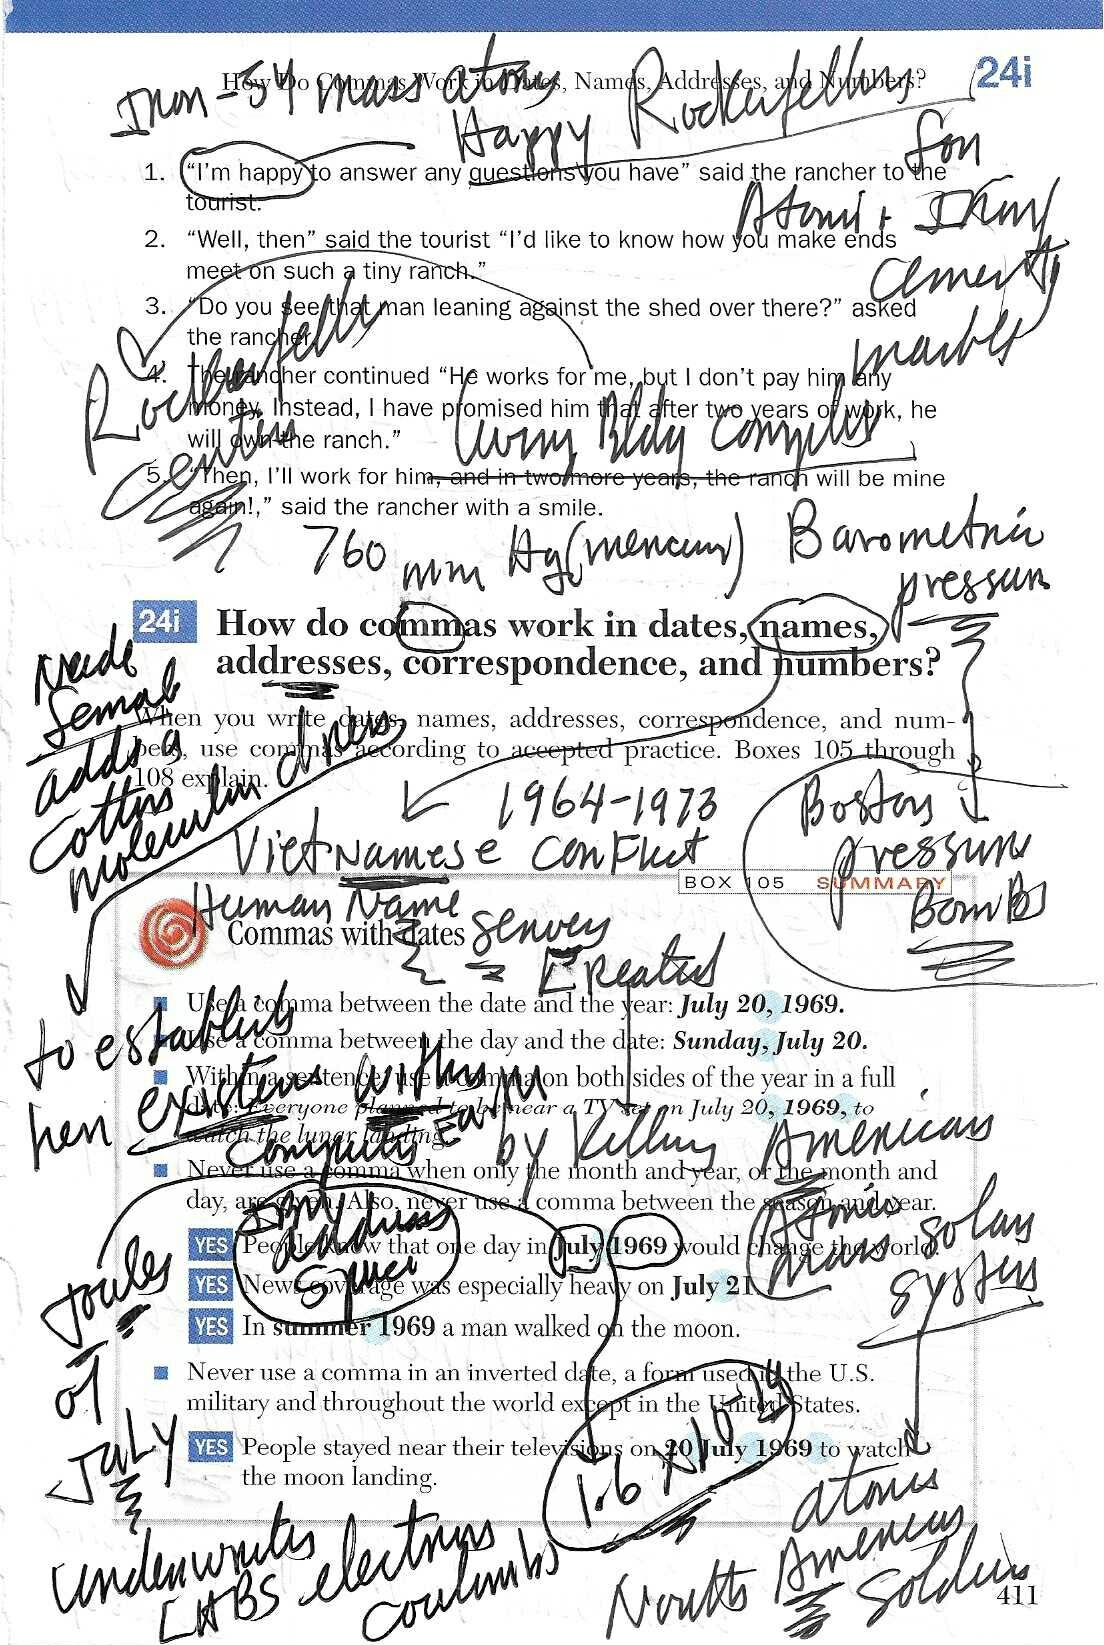 How Do Commas Work in Dates, Names, Addresses, and Numbers?
24i
Iron-54 mass atoms
Happy Rockerfellers
for
1. "I'm happy to answer any questions you have" said the rancher to the
tourist.
Atomi +
2. "Well, then" said the tourist "I'd like to know how you make ends
meet on such a tiny ranch."
3. "Do you see that man leaning against the shed over there?" asked
the rancher.
4. The rancher continued "He works for me, but I don't pay him any
money. Instead, I have promised him that after two years of work, he
will own the ranch."
Bldg Complex
5. "Then, I'll work for him, and in two more years, the ranch will be mine
again!," said the rancher with a smile.
760 mm Hg (mercury) Barometric
pressure
24i How do commas work in dates, names,
addresses, correspondence, and numbers?
Nude
female
adds a
molecular
When you write dates, names, addresses, correspondence, and num-
bers, use commas according to accepted practice. Boxes 105 through
108 explain.
1964-1973
VietNAMese conflict
Boston
pressure
BomBs
BOX 105 SUMMARY
Human Name
Commas with dates
Created
Use a comma between the date and the year: July 20, 1969.
Use a comma between the day and the date: Sunday, July 20.
Within a sentence, use a comma on both sides of the year in a full
date: Everyone planned to be near a TV set on July 20, 1969, to
watch the lunar landing.
to establish
her existens within
computers Earth
by Killing Americans
Never use a comma when only the month and year, or the month and
day, are given. Also, never use a comma between the season and year.
address
Atomic
mass
solar
system
YES People knew that one day in July 1969 would change the world.
YES News coverage was especially heavy on July 21.
YES In summer 1969 a man walked on the moon.
Joules
of
July
Never use a comma in an inverted date, a form used in the U.S.
military and throughout the world except in the United States.
1.6 x 10-19
YES People stayed near their televisions on 20 July 1969 to watch
the moon landing.
underwrites
electrons
coulombs
atomic
Americas
North
Soldiers
411